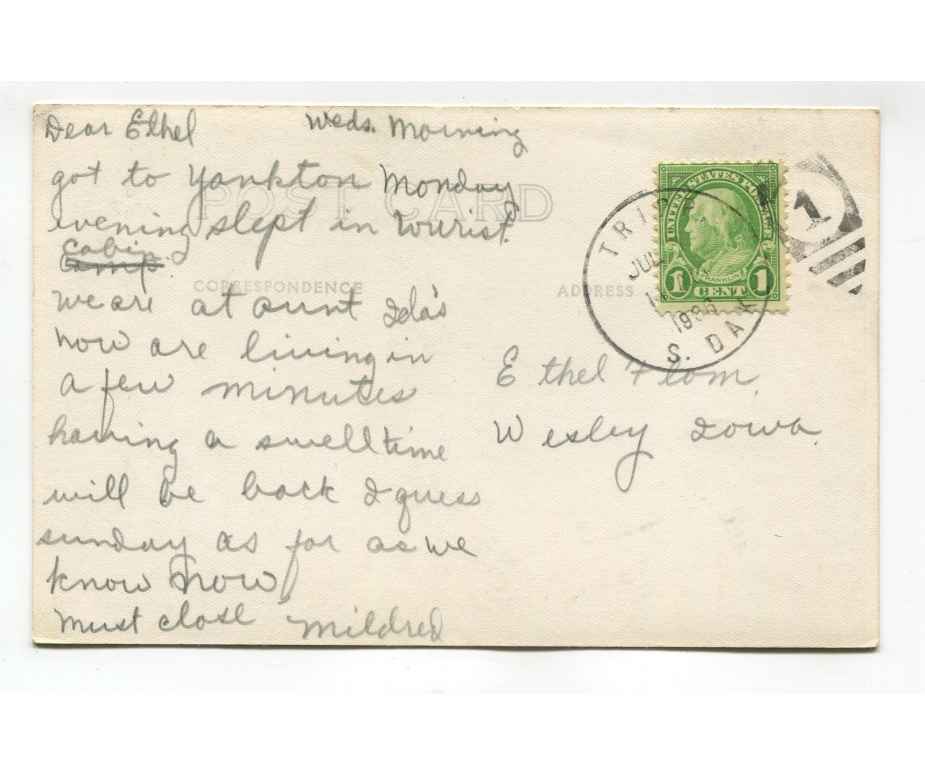 Dear Ethel Weds. Morning
got to Yankton Monday
evening slept in tourist
cabin
camp.
we are at aunt Ida's
now are living in
a few minutes
having a swell time
will be back I guess
sunday as far as we
know now
must close Mildred
POST CARD
CORRESPONDENCE
ADDRESS
UNITED STATES POSTAGE
1 CENT 1
TRIPP
JUL
S. DAK
1
Ethel Flom,
Wesley Iowa.